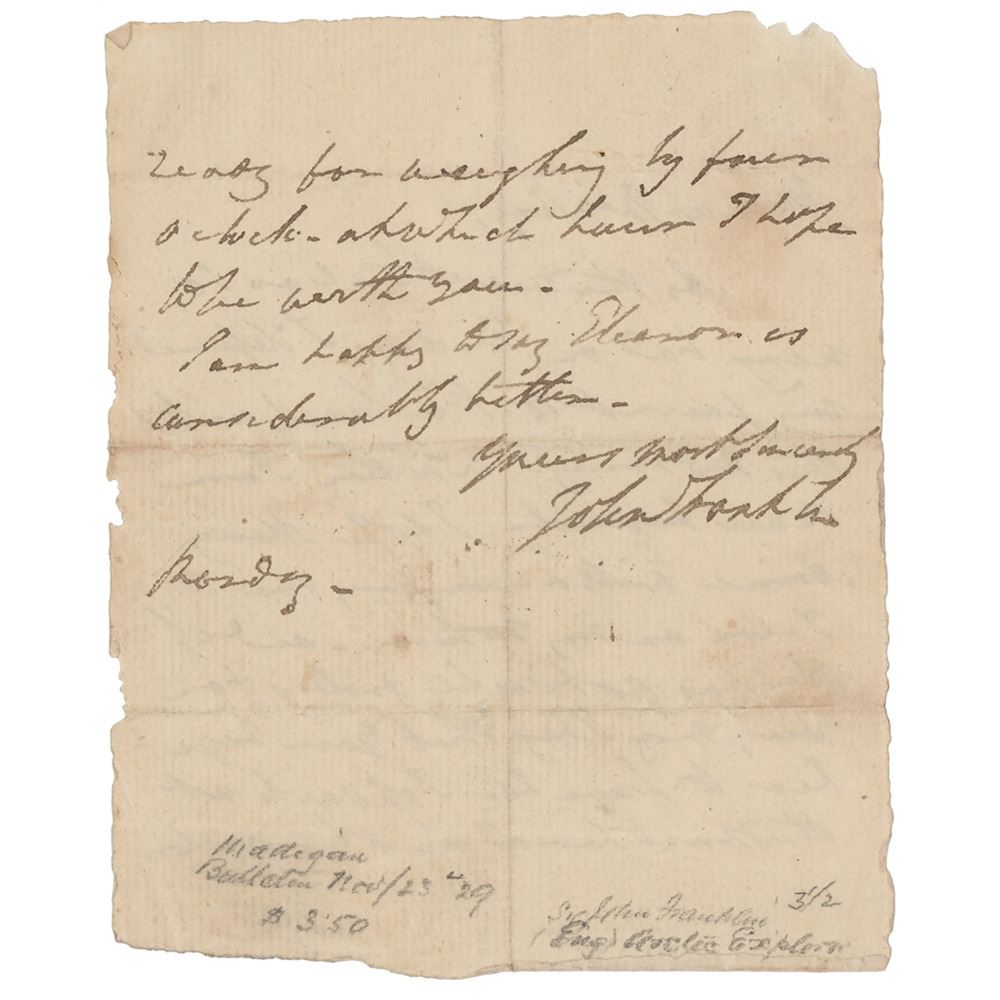 ready for weighing by four
o'clock - at which hour I hope
to be with you -
I am happy to say Eleanor is
considerably better -
Yours most sincerely
John Franklin
Monday -
Madigan
Bulletin Nov/23 " 29
$ 3.50
3/2
Sir John Franklin
(Eng) Arctic Explorer